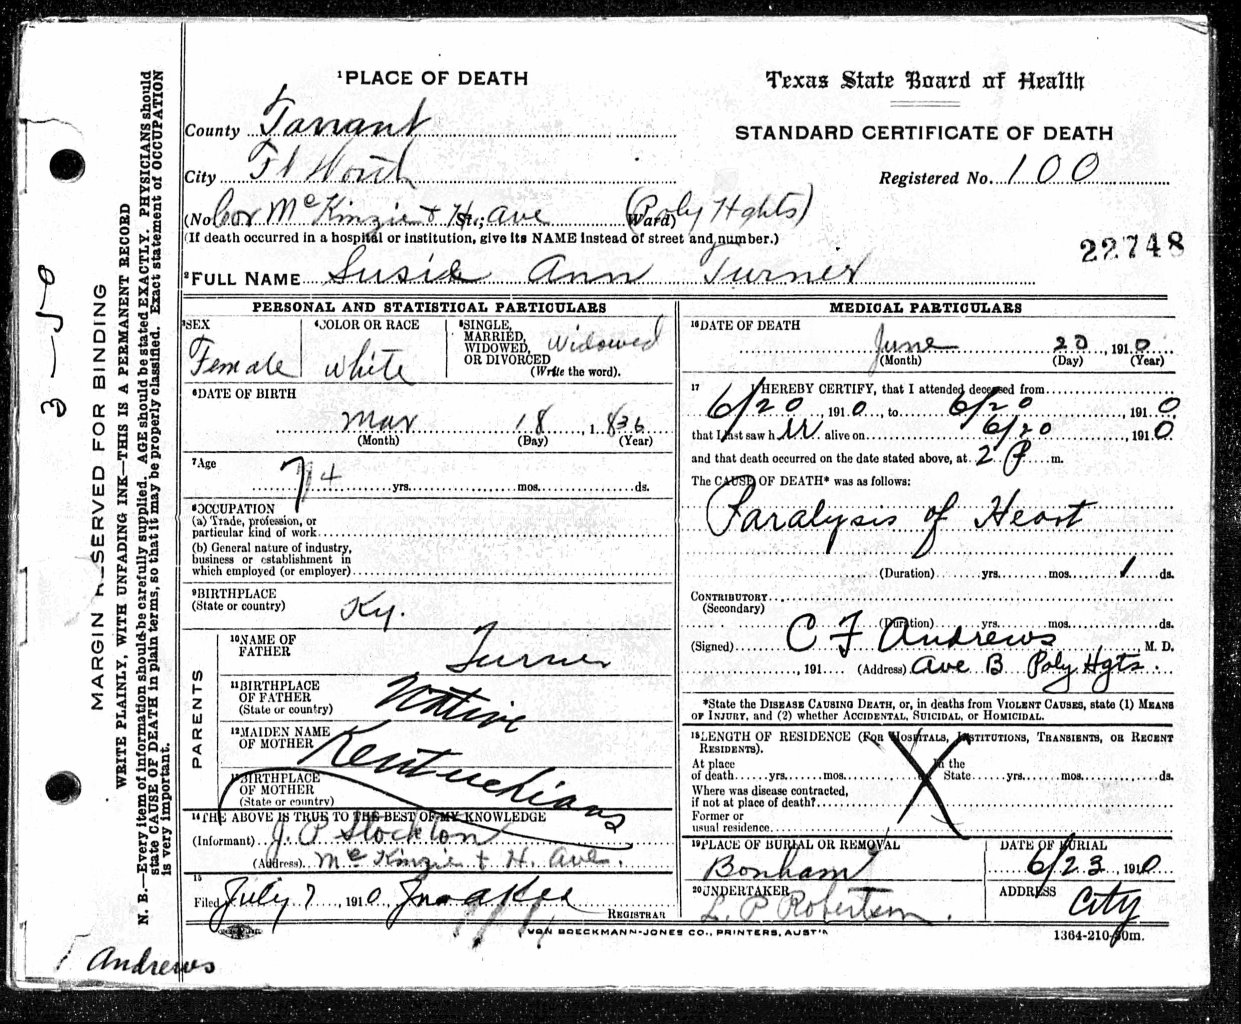 ¹PLACE OF DEATH
Texas State Board of Health
STANDARD CERTIFICATE OF DEATH
County Tarrant
City Ft Worth
Registered No. 100
(No. Cor McKinzie & H St.; Ave Ward) (Poly Hghts)
(If death occurred in a hospital or institution, give its NAME instead of street and number.)
22748
²FULL NAME Susie Ann Turner
PERSONAL AND STATISTICAL PARTICULARS
³SEX
Female
⁴COLOR OR RACE
White
⁵SINGLE,
MARRIED,
WIDOWED,
OR DIVORCED
(Write the word).
Widowed
⁶DATE OF BIRTH
Mar 18, 1836
(Month) (Day) (Year)
⁷Age
74 yrs. mos. ds.
⁸OCCUPATION
(a) Trade, profession, or
particular kind of work
(b) General nature of industry,
business or establishment in
which employed (or employer)
⁹BIRTHPLACE
(State or country)
Ky.
PARENTS
¹⁰NAME OF
FATHER
Turner
¹¹BIRTHPLACE
OF FATHER
(State or country)
Native
¹²MAIDEN NAME
OF MOTHER
Kentuckians
¹³BIRTHPLACE
OF MOTHER
(State or country)
¹⁴THE ABOVE IS TRUE TO THE BEST OF MY KNOWLEDGE
(Informant) J. P Stockton
(Address) McKinzie & H. Ave.
15
Filed July 7 1910
REGISTRAR
MEDICAL PARTICULARS
¹⁶DATE OF DEATH
June 20, 1910
(Month) (Day) (Year)
17 I HEREBY CERTIFY, that I attended deceased from
6/20, 1910, to 6/20, 1910
that I last saw her alive on 6/20, 1910
and that death occurred on the date stated above, at 2 P m.
The CAUSE OF DEATH* was as follows:
Paralysis of Heart
(Duration) yrs. mos. 1 ds.
CONTRIBUTORY
(Secondary)
(Duration) yrs. mos. ds.
(Signed) C F Andrews M. D.
, 191 (Address) Ave B Poly Hgts.
*State the DISEASE CAUSING DEATH, or, in deaths from VIOLENT CAUSES, state (1) MEANS
OF INJURY, and (2) whether ACCIDENTAL, SUICIDAL, or HOMICIDAL.
¹⁸LENGTH OF RESIDENCE (FOR HOSPITALS, INSTITUTIONS, TRANSIENTS, OR RECENT
RESIDENTS).
At place
of death yrs. mos. In the
State yrs. mos. ds.
Where was disease contracted,
if not at place of death?
Former or
usual residence
¹⁹PLACE OF BURIAL OR REMOVAL
Bonham
DATE OF BURIAL
6/23 1910
²⁰UNDERTAKER
L. P Robertson.
ADDRESS
City
VON BOECKMANN-JONES CO., PRINTERS, AUST'N
1364-210-50m.
Andrews
3—50
MARGIN RESERVED FOR BINDING
WRITE PLAINLY, WITH UNFADING INK—THIS IS A PERMANENT RECORD
N. B.—Every item of information should be carefully supplied. AGE should be stated EXACTLY. PHYSICIANS should
state CAUSE OF DEATH in plain terms, so that it may be properly classified. Exact statement of OCCUPATION
is very important.